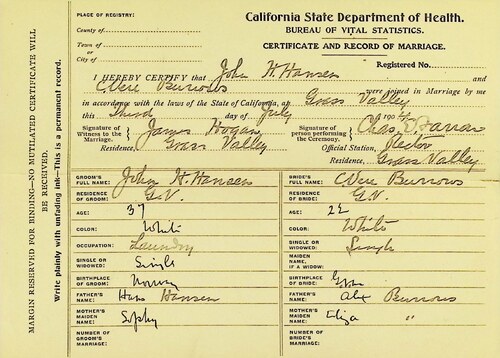 PLACE OF REGISTRY:
County of
Town of
or
City of
California State Department of Health.
BUREAU OF VITAL STATISTICS.
CERTIFICATE AND RECORD OF MARRIAGE.
Registered No.
I HEREBY CERTIFY that John H. Hansen
and Vere Burrows were joined in Marriage by me
in accordance with the laws of the State of California, at Grass Valley
this Third day of July 190
Signature of Witness to the Marriage. James Hogan
Residence, Grass Valley
Signature of person performing the Ceremony.
Official Station, Rector
Residence, Grass Valley
GROOM'S FULL NAME: John H. Hansen
RESIDENCE OF GROOM: G.V.
AGE: 37
COLOR: White
OCCUPATION: Laundry
SINGLE OR WIDOWED: Single
BIRTHPLACE OF GROOM: Norway
FATHER'S NAME: Hans Hansen
MOTHER'S MAIDEN NAME: Sophy
NUMBER OF GROOM'S MARRIAGE:
BRIDE'S FULL NAME: Vere Burrows
RESIDENCE OF BRIDE: G.V.
AGE: 22
COLOR: White
SINGLE OR WIDOWED: Single
MAIDEN NAME, IF A WIDOW:
BIRTHPLACE OF BRIDE:
FATHER'S NAME: Alex Burrows
MOTHER'S MAIDEN NAME: Eliza "
NUMBER OF BRIDE'S MARRIAGE:
MARGIN RESERVED FOR BINDING—NO MUTILATED CERTIFICATE WILL
BE RECEIVED.
Write plainly with unfading ink—This is a permanent record.